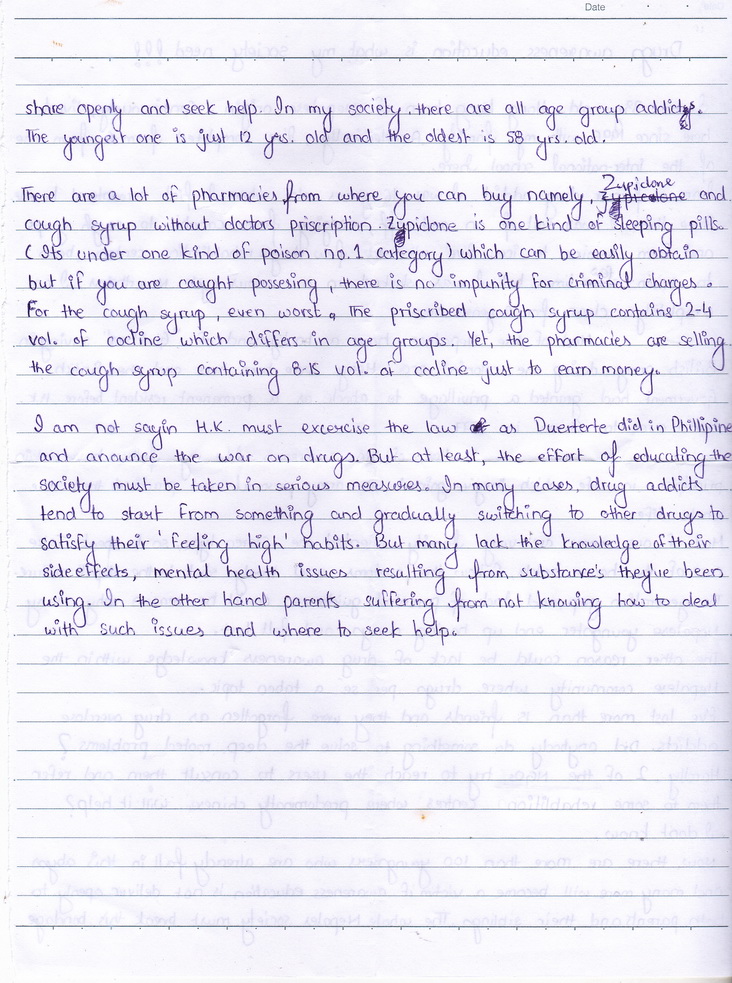 Date
share openly and seek help. In my society, there are all age group addicts.
The youngest one is just 12 yrs. old and the oldest is 58 yrs. old.
There are a lot of pharmacies, from where you can buy namely, Zypiclone and
cough syrup without doctors priscription. Zypiclone is one kind of sleeping pills.
(Its under one kind of poison no.1 category) which can be easily obtain
but if you are caught possesing, there is no impunity for criminal charges.
For the cough syrup, even worst. The priscribed cough syrup contains 2-4
vol. of codine which differs in age groups. Yet, the pharmacies are selling
the cough syrup containing 8-15 vol. of codine just to earn money.
I am not sayin H.K. must excercise the law as Duerterte did in Phillipine
and anounce the war on drugs. But at least, the effort of educating the
society must be taken in serious measures. In many cases, drug addicts
tend to start from something and gradually switching to other drugs to
satisfy their 'feeling high' habits. But many lack the knowledge of their
side effects, mental health issues resulting from substance's they've been
using. In the other hand parents suffering from not knowing how to deal
with such issues and where to seek help.